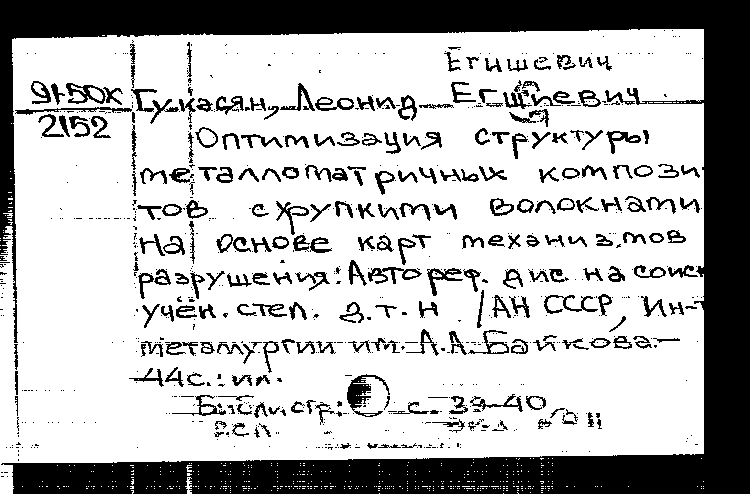 Егишевич
91-50к Гукасян, Леонид Егишевич
2152
Оптимизация структуры
металломатричных компози-
тов с хрупкими волокнами
на основе карт механизмов
разрушения: Автореф. дис. на соиск
учен. степ. д.т.н /АН СССР, Ин-т
металлургии им. А.А. Байкова.-
44с.: ил.
Библиогр: с. 39-40